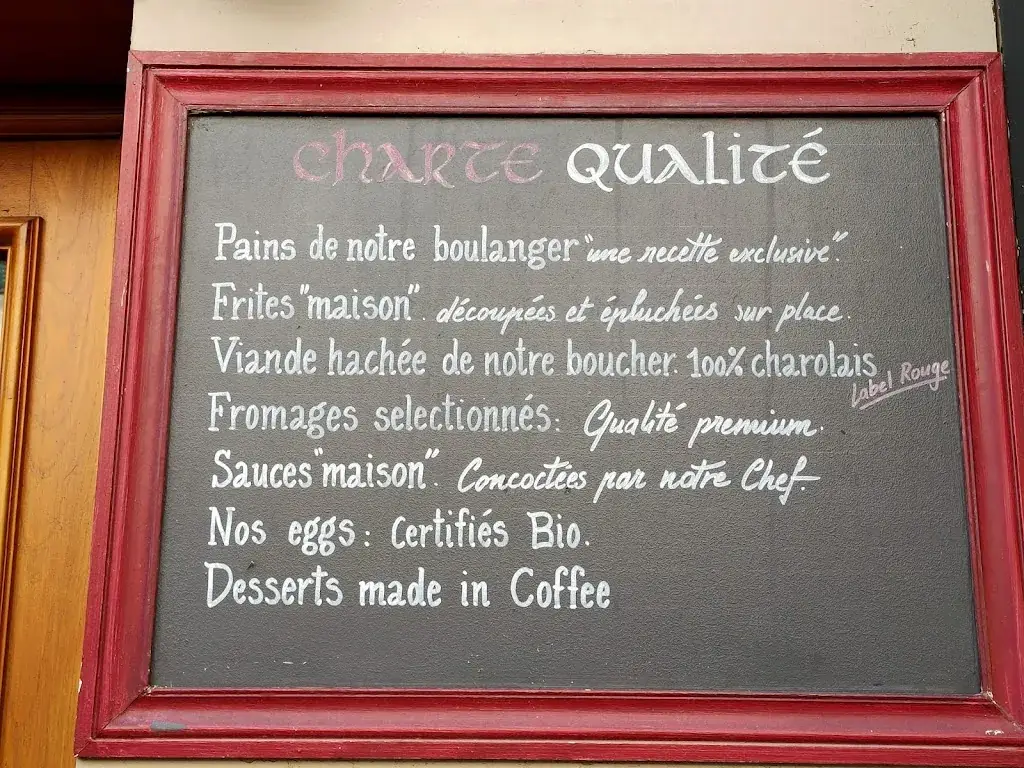 Charte Qualité
Pains de notre boulanger "une recette exclusive".
Frites "maison". découpées et épluchées sur place.
Viande hachée de notre boucher. 100% charolais
Label Rouge
Fromages selectionnés: Qualité premium.
Sauces "maison". Concoctées par notre Chef.
Nos eggs: Certifiés Bio.
Desserts made in Coffee